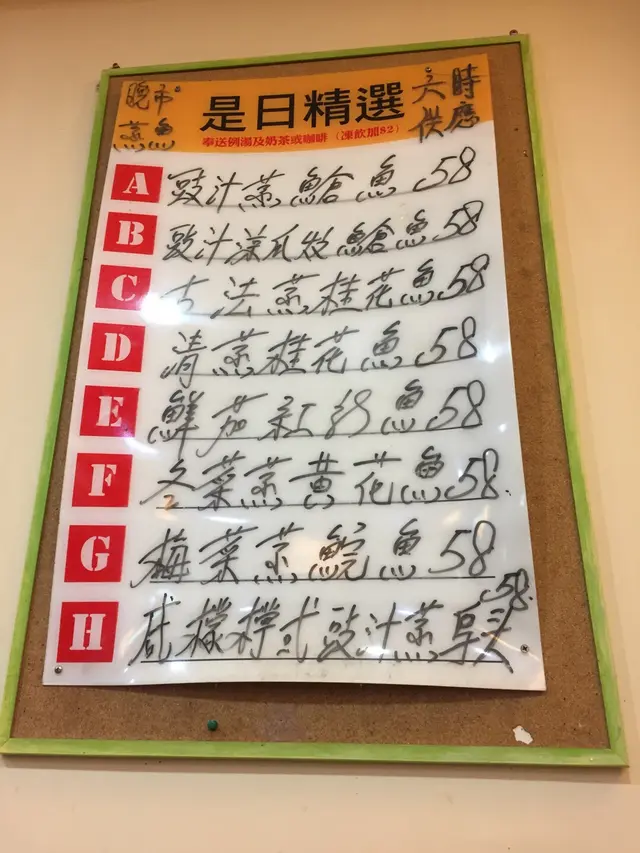 晚市
蒸魚
是日精選
六時
供應
奉送例湯及奶茶或咖啡(凍飲加$2)
A 豉汁蒸鱠魚 58
B 豉汁蒸爪仔鱠魚 58
C 古法蒸桂花魚 58
D 清蒸桂花魚 58
E 鮮茄紅衫魚 58
F 冬菜蒸黄花魚 58
G 梅菜蒸鯇魚 58
H 咸檬檸或豉汁蒸烏头 58